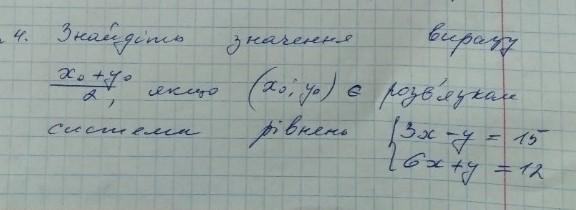 4. Знайдіть значення виразу
x₀ + y₀ / 2, якщо (x₀; y₀) є розв'язком
системи рівнень { 3x - y = 15
{ 6x + y = 12